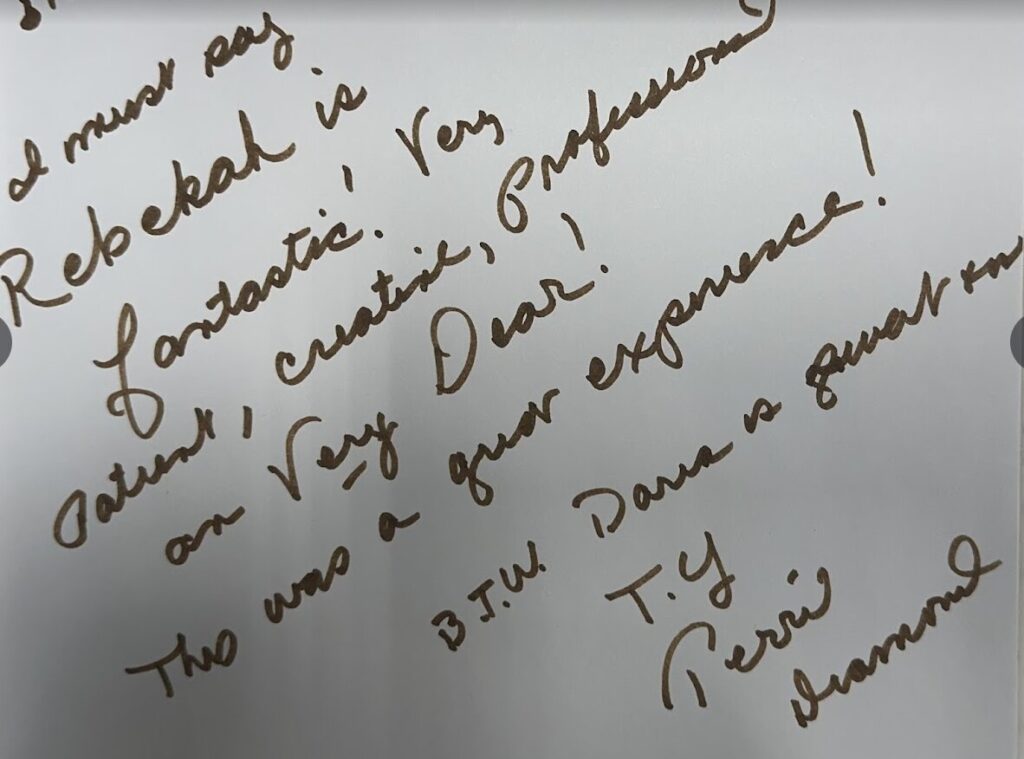 I must say
Rebekah is
fantastic! Very
Patient, creative, Professional
an Very Dear!
This was a great experience!
B.T.W. Daria is great
T.Y
Terri
Diamond